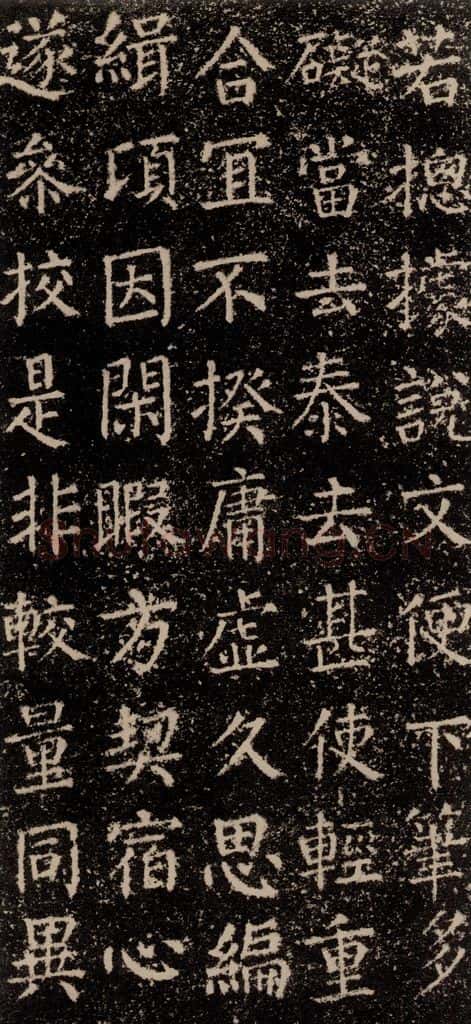 若摠據說文便下筆多
礙當去泰去甚使輕重
合冝不揆庸虛久思編
緝頃因閑暇方契宿心
遂叅挍是非較量同異
ShuFaWang.CN